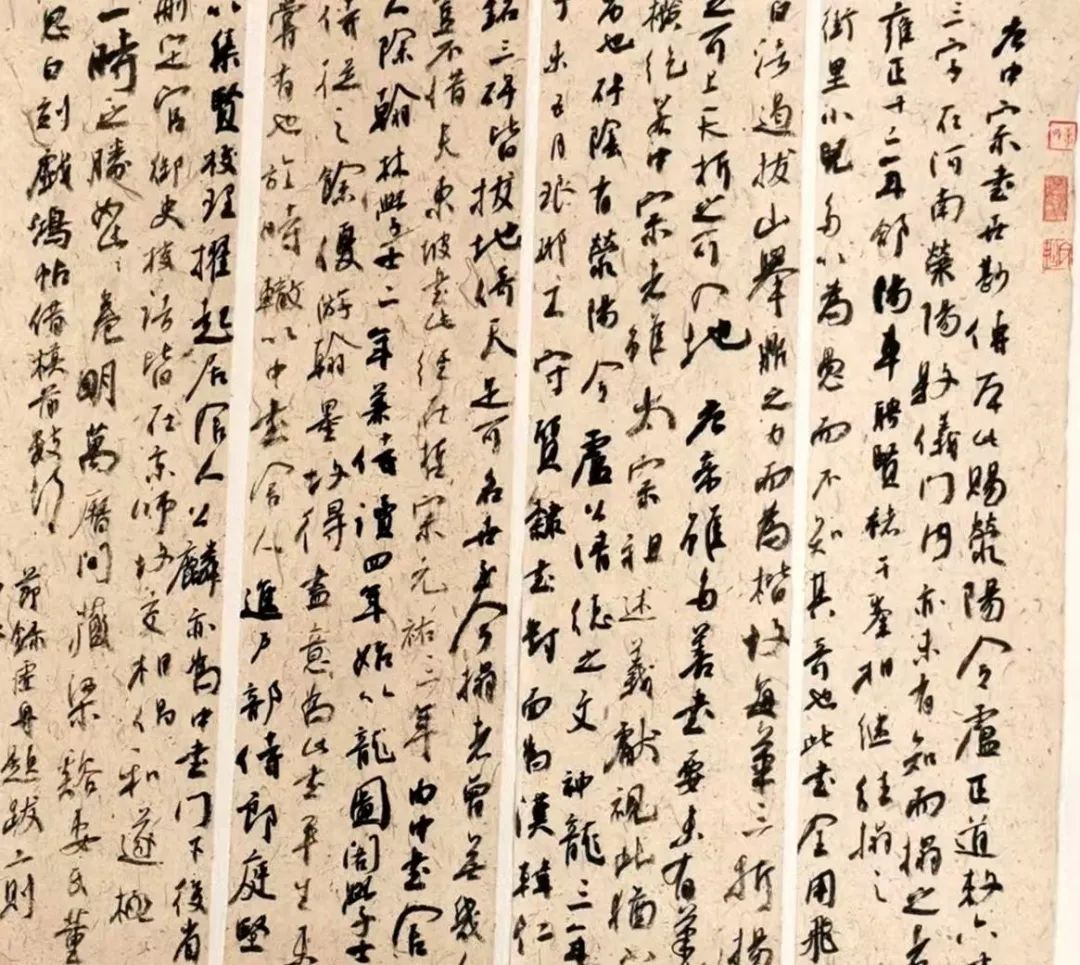 唐中宗書在勘傅石此賜滎陽令盧正道敕六
三字在河南滎陽縣儀門內亦未有知而搨之者
雍正十二年郃陽車聘賢褚千峯相继往搨之
街里小兒多以為愚而不知其奇也此書全用飛
白法過拔山舉鼎之力而為楷故每筆三折揚
之可上天折之可入地 唐帝雖多善書要未有
縱若中宗者雖太宗祖述羲獻視此猶
者也碑陰有滎陽令盧公清德之文神龍三年
丁未五月琅邪王守質隸書對面為漢韓仁
銘三碑皆拔地倚天足可名世如今搨者曾無幾人
豈不惜夫東坡書此經在哲宗元祐三年由中書舍
人除翰林學士二年兼侍讀四年始以龍圖閣學士
侍從之餘優游翰墨故得盡意為此書平生
嘗有也於時轍以中書舍人進戶部侍郎庭堅
以集賢校理擢起居舍人公麟亦為中書門下後省
刪定官御史檢法皆在京師故交相倡和遂極
一時之勝如此卷明萬曆間藏梁谿安氏董
思白刻戲鴻帖借橫首數行
節錄虛舟題跋二則